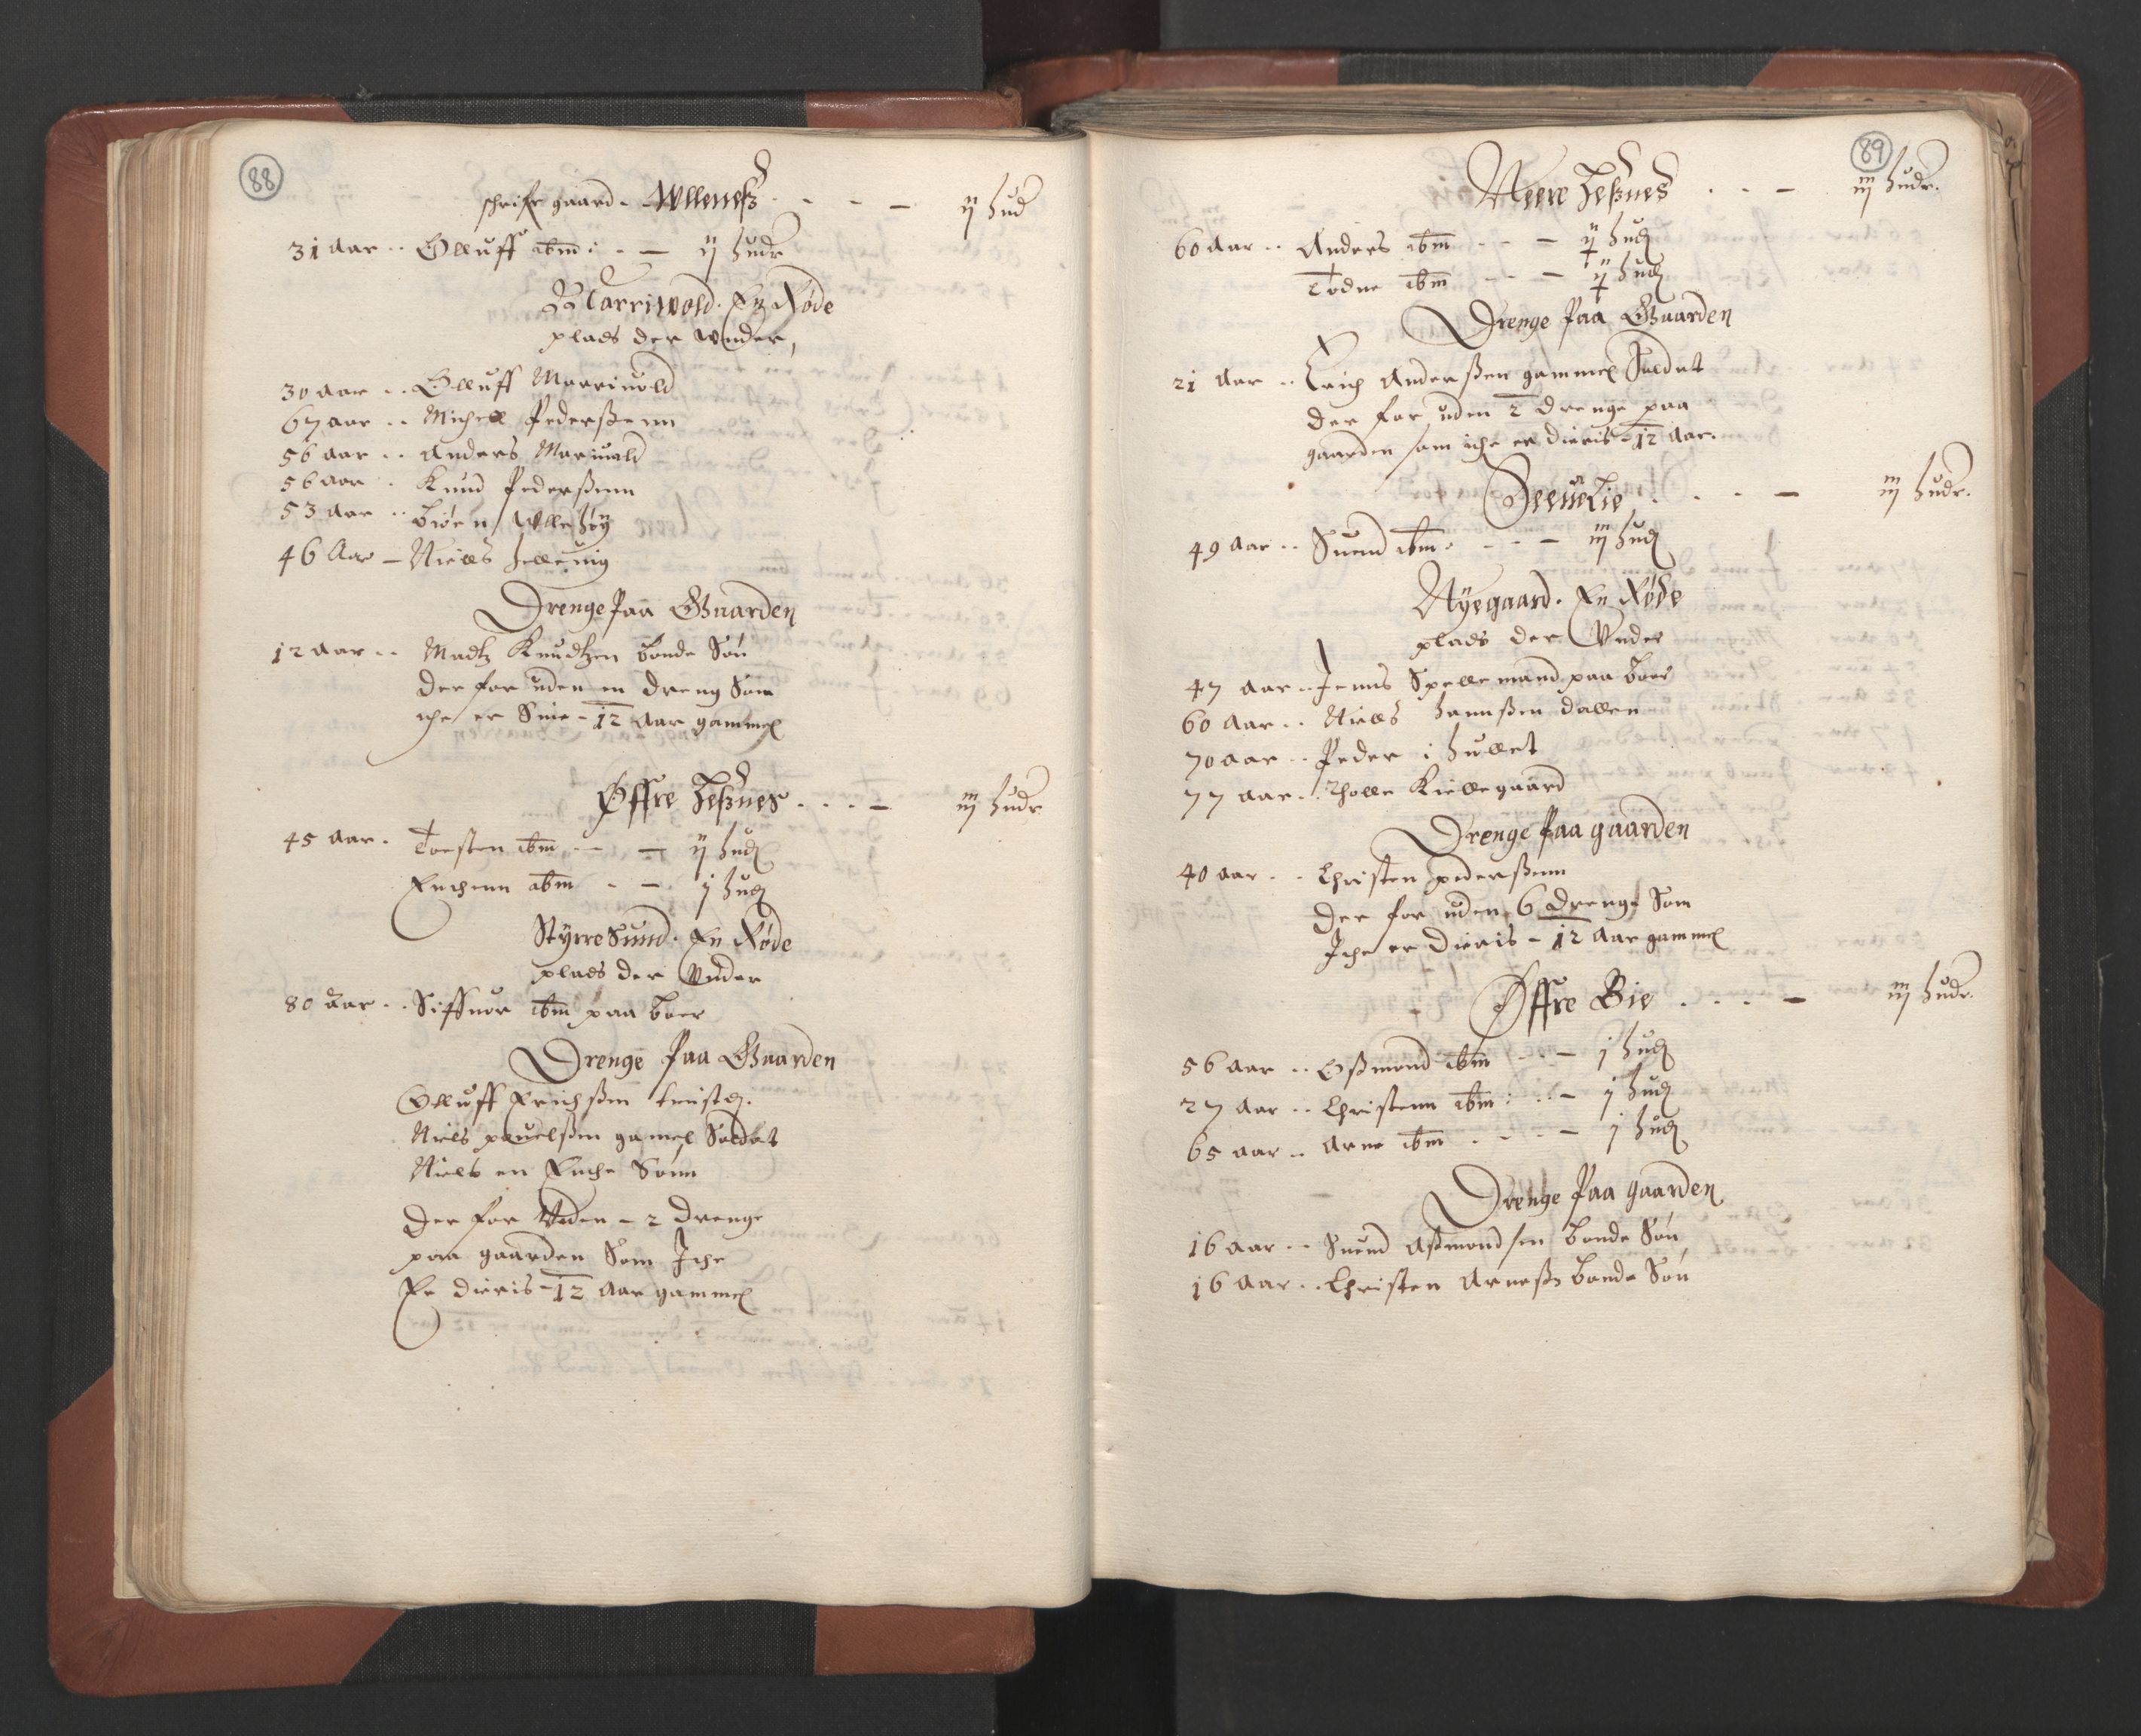 88
schrifr gaard. Wllenesß . . . – ij hud
31 aar .. Olluff ibm: . – ij hudr
Marriwold. En Røde
plads der wnder,
30 aar .. Olluff Marriuold
67 aar .. Michell Pederßenn
56 aar .. Anders Mariuold
56 aar . Knud Pederßenn
53 aar .. Biøen Wllehøy
46 Aar – Niells Hellevig
Drenge Paa Gaarden
12 aar .. Madtz Knudtzen bonde Søn
der for uden en dreng Som
iche er Siue – 12 Aar gammel
Øffre Jeßnes . . . – iij hudr
45 aar . Torsten ibm . – ij hud
Enchenn ibm . – j hud
Styrre Sund. En Røde
plads der Vnder
80 Aar .. Siffuor ibm paa boer
Drenge Paa Gaarden
Olluff Erichßen
Niels pouelßen gamel Soldat
Niels en Enche Sønn
der for Vden – 2 drenge
paa gaarden Som Iche
Er dieris – 12 Aar gammel
89
Neere Jeßnes . . – iij hudr.
60 Aar .. Anders ibm . . – ij hud
Todne ibm . . – ij hud
Drenge Paa Gaarden
21 Aar .. Erich Anderßen gammel Soldat
der for uden 2 drenge paa
gaarden som iche er dieris – 12 Aar.
. . . – iij hudr.
49 Aar .. Suend ibm . . – iij hud
Nyegaard. En Røde
plads der Vnder
47 aar .. Jenns Spellemand paa boer
60 Aar .. Niells Hannßen dallen
70 aar .. Peder i Hullet
77 aar .. Tholle Kiellegaard
Drenge Paa gaarden
40 aar .. Christen pederßenn
der for uden 6 drenge Som
Iche er dieris – 12 Aar gammel
Øffre Bie . . . – iij hudr.
56 aar .. Oßmond ibm . . – j hud
27 Aar .. Christenn ibm . . – j hud
65 aar .. Arne ibm . . . – j hud
Drenge Paa gaarden
16 aar .. Suend Aßmondsen bonde Søn
16 Aar .. Christen Arneß bonde Søn